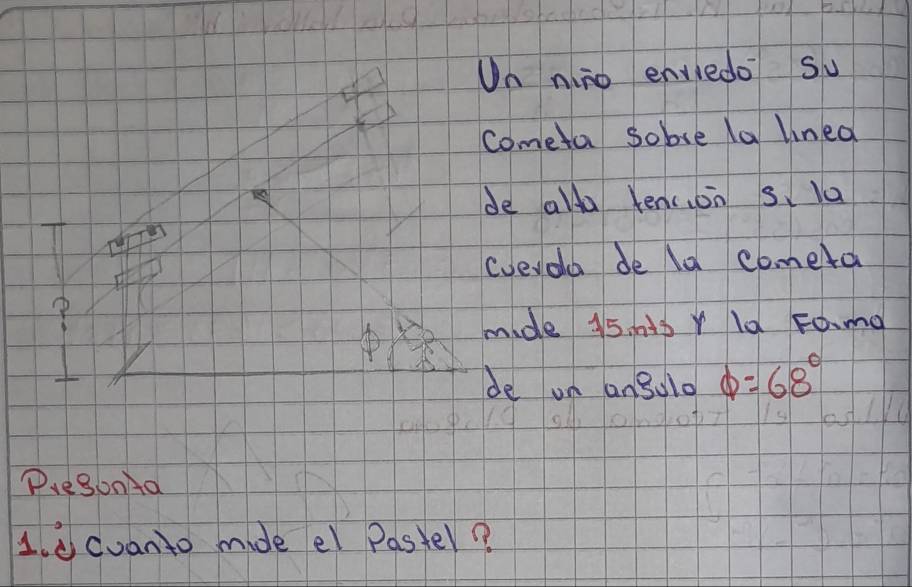 Un niño enrredo su
cometa sobre la linea
de alta tención si la
cuerda de la cometa
mide 15 mts y la Forma
de un angulo ϕ=68°
?
ϕ
Pregunta
1. ¿ cuanto mide el Pastel?